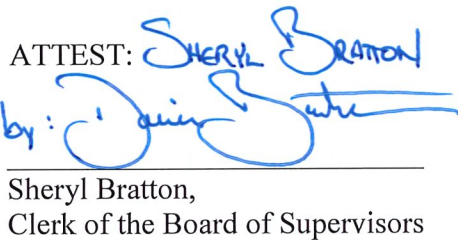 ATTEST: SHERYL BRATTON
by:
Sheryl Bratton,
Clerk of the Board of Supervisors